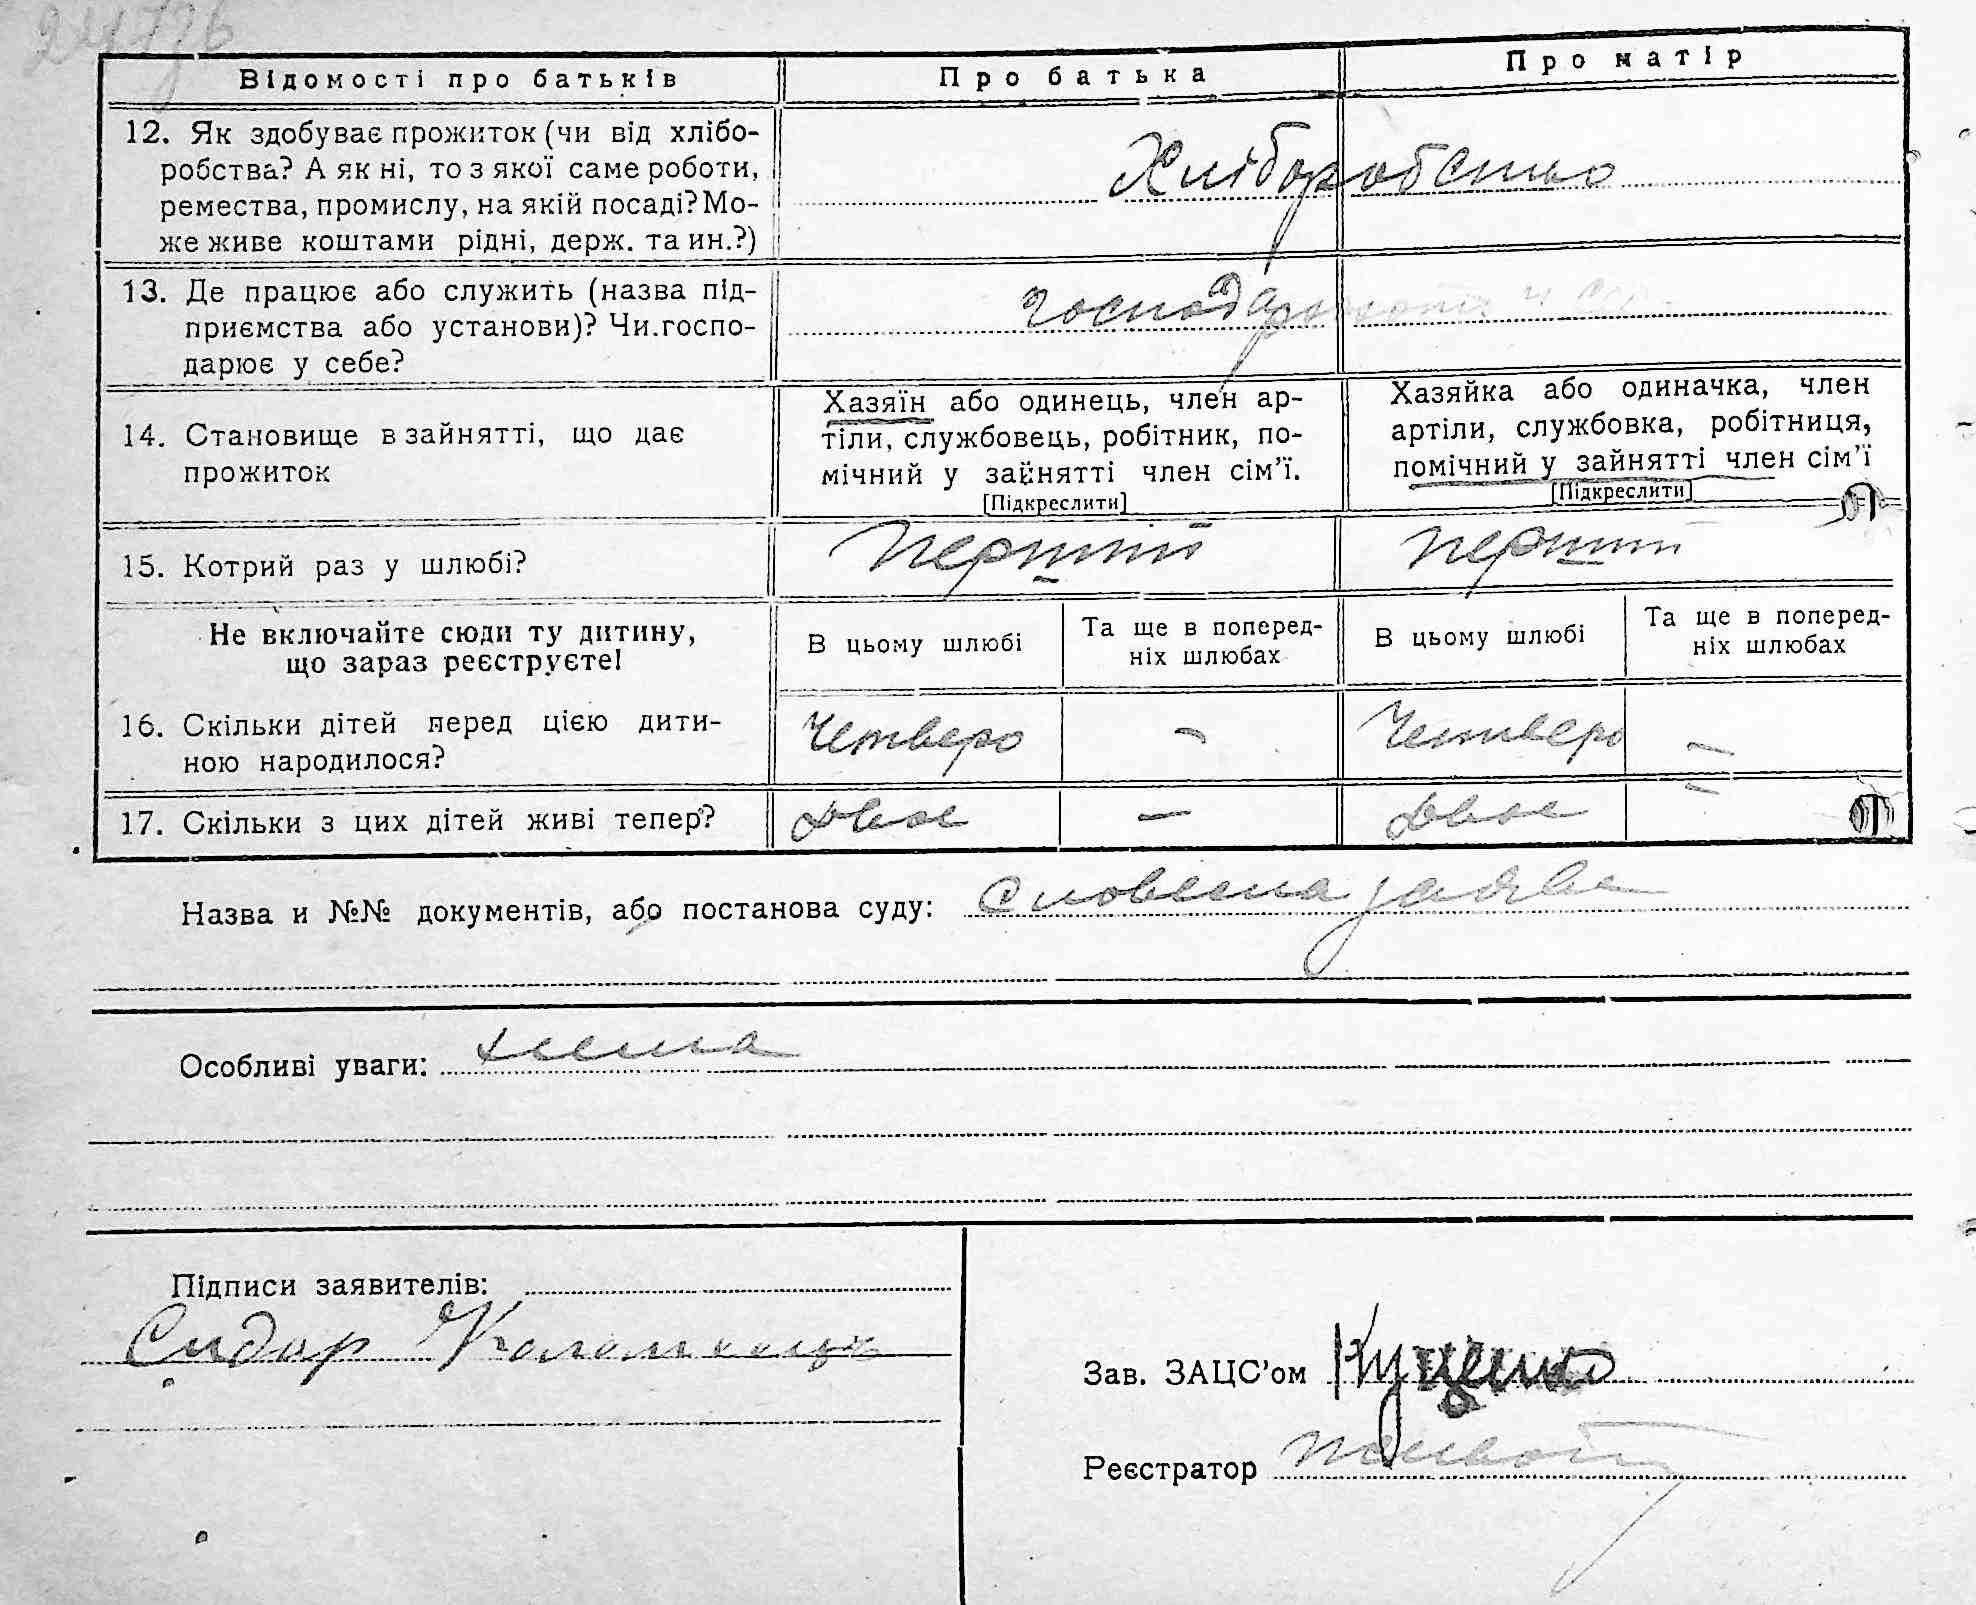 Відомості про батьків
Про батька
Про матір
12. Як здобуває прожиток (чи від хлібо-
робства? А як ні, то з якої саме роботи,
ремества, промислу, на якій посаді? Мо-
же живе коштами рідні, держ. та ин.?)
Хліборобство
13. Де працює або служить (назва під-
приємства або установи)? Чи.госпо-
дарює у себе?
14. Становище в зайнятті, що дає
прожиток
Хазяїн або одинець, член ар-
тіли, службовець, робітник, по-
мічний у зайнятті член сім'ї.
[Підкреслити]
Хазяйка або одиначка, член
артіли, службовка, робітниця,
помічний у зайнятті член сім'ї
[Підкреслити]
15. Котрий раз у шлюбі?
перший
перший
Не включайте сюди ту дитину,
що зараз реєструєте!
В цьому шлюбі
Та ще в поперед-
ніх шлюбах
В цьому шлюбі
Та ще в поперед-
ніх шлюбах
16. Скільки дітей перед цією дити-
ною народилося?
Четверо
-
Четверо
-
17. Скільки з цих дітей живі тепер?
Двоє
-
Двоє
-
Назва и №№ документів, або постанова суду: Словесна заява
Особливі уваги: нема
Підписи заявителів:
Сидор
Зав. ЗАЦС'ом Куценко
Реєстратор